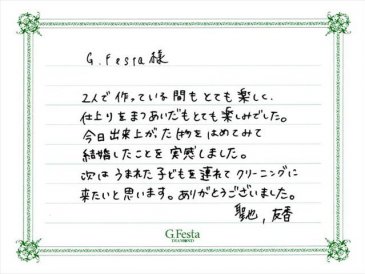 G.Festa様
2人で作っている間もとても楽しく、
仕上りをまつあいだもとても楽しみでした。
今日出来上がった物をはめてみて
結婚したことを実感しました。
次はうまれた子どもを連れてクリーニングに
来たいと思います。ありがとうございました。
聖也，友香
G.Festa
DIAMOND